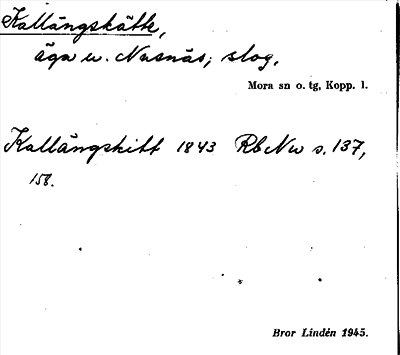 Kallängskätte,
äga u. Nusnäs; slog.
Mora sn o. tg, Kopp. l.
Kallängskitt 1843 Rb Nu s. 137,
158.
Bror Lindén 1945.